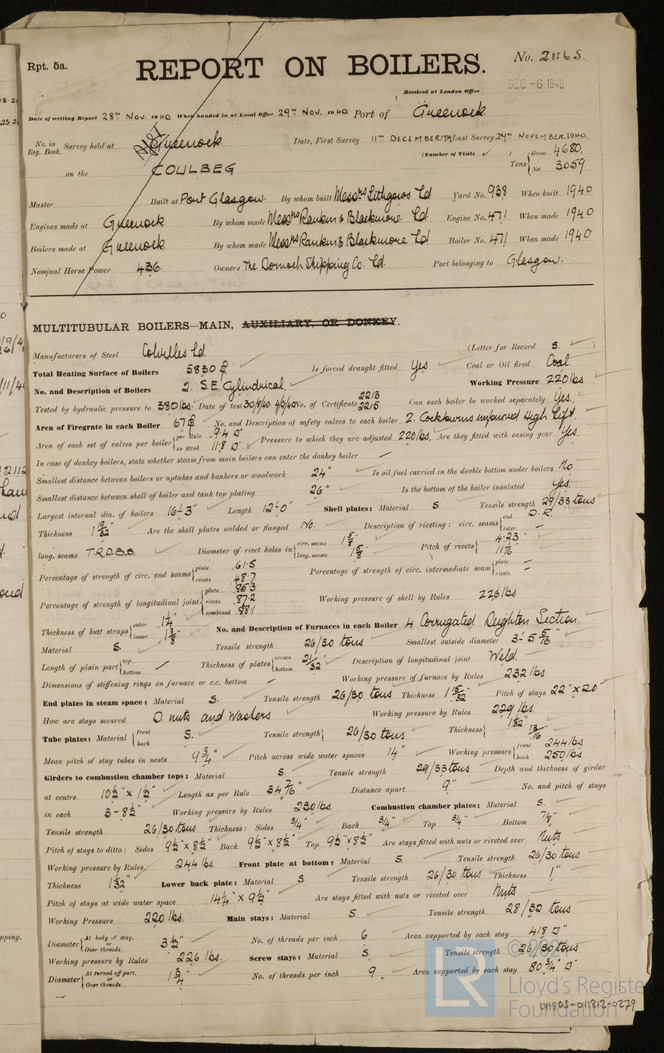 Rpt. 5a.
REPORT ON BOILERS.
No. 21165
Received at London Office
DEC -6 1940
Date of writing Report 28th Nov. 1940 When handed in at Local Office 29th Nov. 1940 Port of Greenock
No. in Reg. Book. Survey held at Greenock Date, First Survey 11th December Last Survey 27th November 1940
(Number of Visits )
on the COULBEG Tons { Gross 4680 Net 3059
Master Built at Port Glasgow. By whom built Messrs Lithgows Ld Yard No. 938 When built 1940
Engines made at Greenock By whom made Messrs Rankin & Blackmore Ld Engine No. 471 When made 1940
Boilers made at Greenock By whom made Messrs Rankin & Blackmore Ld Boiler No. 471 When made 1940
Nominal Horse Power 436 Owners The Dornoch Shipping Co. Ld. Port belonging to Glasgow.
MULTITUBULAR BOILERS—MAIN, AUXILIARY, OR DONKEY.
Manufacturers of Steel Colvilles Ld. (Letter for Record S. )
Total Heating Surface of Boilers 5830 Is forced draught fitted Yes Coal or Oil fired Coal
No. and Description of Boilers 2. S.E. Cylindrical. Working Pressure 220 lbs
Tested by hydraulic pressure to 380 lbs. Date of test No. of Certificate 2213 2215 Can each boiler be worked separately Yes.
Area of Firegrate in each Boiler 67 No. and Description of safety valves to each boiler 2. Cockburns improved High Lift.
Area of each set of valves per boiler { per Rule 9.4 as fitted 11.8 Pressure to which they are adjusted 220 lbs. Are they fitted with easing gear Yes.
In case of donkey boilers, state whether steam from main boilers can enter the donkey boiler —
Smallest distance between boilers or uptakes and bunkers or woodwork 24" Is oil fuel carried in the double bottom under boilers No
Smallest distance between shell of boiler and tank top plating 26" Is the bottom of the boiler insulated Yes.
Largest internal dia. of boilers 16'-3" Length 12'-0" Shell plates: Material S Tensile strength 29/33 tons
Thickness 1 19/32 Are the shell plates welded or flanged No. Description of riveting: circ. seams { end D.R. inter. —
long. seams T.R.D.B.S. Diameter of rivet holes in { circ. seams 1 5/8 long. seams 1 5/8 Pitch of rivets { 4.23 11 1/16
Percentage of strength of circ. end seams { plate 61.5 rivets 48.7 Percentage of strength of circ. intermediate seam { plate — rivets —
Percentage of strength of longitudinal joint { plate 85.3 rivets 87.2 combined 88.1 Working pressure of shell by Rules 226 lbs
Thickness of butt straps { outer 1 1/4 inner 1 3/8 No. and Description of Furnaces in each Boiler 4 Corrugated Deighton Section.
Material S. Tensile strength 26/30 tons Smallest outside diameter 3'-5 5/16"
Length of plain part { top bottom — Thickness of plates { crown bottom 21/32 Description of longitudinal joint Weld.
Dimensions of stiffening rings on furnace or c.c. bottom — Working pressure of furnace by Rules 232 lbs
End plates in steam space: Material S. Tensile strength 26/30 tons Thickness 1 15/32 Pitch of stays 22" x 20"
How are stays secured D. nuts and Washers Working pressure by Rules 229 lbs.
Tube plates: Material { front back S. Tensile strength { 26/30 tons Thickness { 1 1/32 13/16
Mean pitch of stay tubes in nests 9 3/4" Pitch across wide water spaces 14" Working pressure { front 244 lbs back 250 lbs
Girders to combustion chamber tops: Material S. Tensile strength 29/33 tons Depth and thickness of girder
at centre 10 1/2" x 1 1/2" Length as per Rule 34 7/16" Distance apart 9" No. and pitch of stays
in each 3 - 8 1/2" Working pressure by Rules 230 lbs Combustion chamber plates: Material S.
Tensile strength 26/30 tons Thickness: Sides 3/4" Back 3/4" Top 3/4" Bottom 7/8"
Pitch of stays to ditto: Sides 9 1/2" x 8 1/2" Back 9 1/2" x 8 1/2" Top 9 1/2" x 8 1/2" Are stays fitted with nuts or riveted over Nuts
Working pressure by Rules 244 lbs. Front plate at bottom: Material S. Tensile strength 26/30 tons
Thickness 1 1/32" Lower back plate: Material S Tensile strength 26/30 tons Thickness 1"
Pitch of stays at wide water space 14 1/4" x 9 1/2" Are stays fitted with nuts or riveted over Nuts
Working Pressure 220 lbs. Main stays: Material S Tensile strength 28/32 tons
Diameter { At body of stay, or Over threads. 3 1/2" No. of threads per inch 6 Area supported by each stay 418
Working pressure by Rules 226 lbs. Screw stays: Material S Tensile strength 26/30 tons
Diameter { At turned off part, or Over threads. 1 3/4" No. of threads per inch 9. Area supported by each stay 80 3/4
LR
Lloyd's Register
Foundation
011805-011812-0279